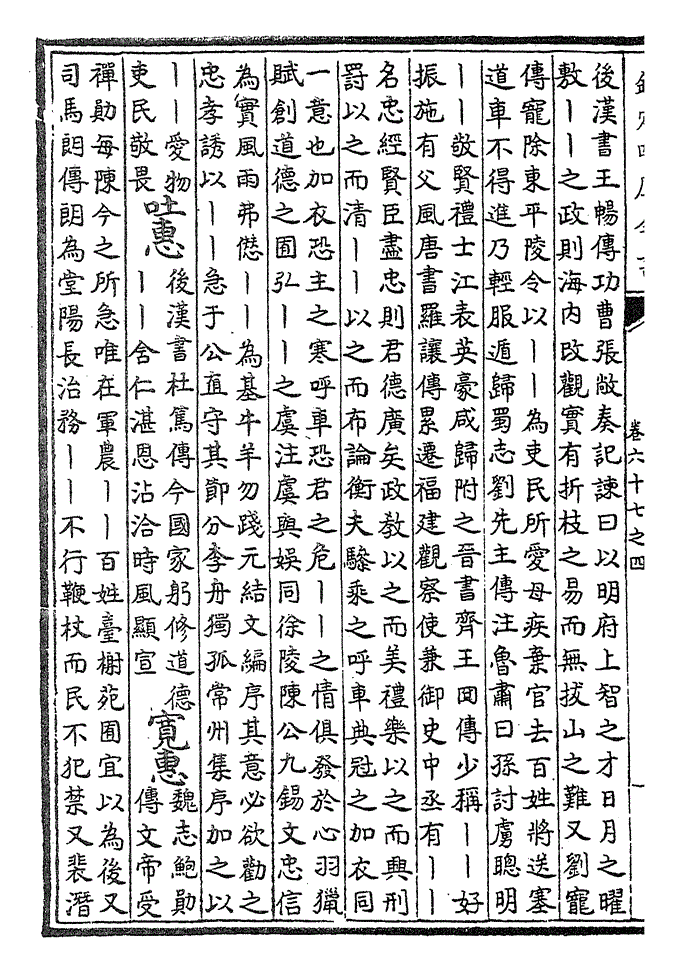 欽定四庫全書
卷六十七之四
後漢書王暢傳功曹張敞奏記諫曰以明府上智之才日月之曜
敷丨丨之政則海内改觀實有折枝之易而無拔山之難又劉寵
傳寵除東平陵令以丨丨為吏民所愛母疾棄官去百姓將送塞
道車不得進乃輕服遁歸蜀志劉先主傳注魯肅曰孫討虜聰明
丨丨敬賢禮士江表英豪咸歸附之晉書齊王冏傳少稱丨丨好
振施有父風唐書羅讓傳累遷福建觀察使兼御史中丞有丨丨
名忠經賢臣盡忠則君德廣矣政教以之而美禮樂以之而興刑
罰以之而清丨丨以之而布論衡夫驂乘之呼車典冠之加衣同
一意也加衣恐主之寒呼車恐君之危丨丨之情俱發於心羽獵
賦創道德之囿弘丨丨之虞注虞與娯同徐陵陳公九錫文忠信
為實風雨弗愆丨丨為基牛羊勿踐元結文編序其意必欲勸之
忠孝誘以丨丨急于公直守其節分李舟獨孤常州集序加之以
丨丨愛物
吏民敬畏
吐惠
後漢書杜篤傳今國家躬修道德
丨丨含仁湛恩沾洽時風顯宣
寛惠
魏志鮑勛
傳文帝受
禪勛每陳今之所急唯在軍農丨丨百姓臺榭苑囿宜以為後又
司馬朗傳朗為堂陽長治務丨丨不行鞭杖而民不犯禁又裴潛